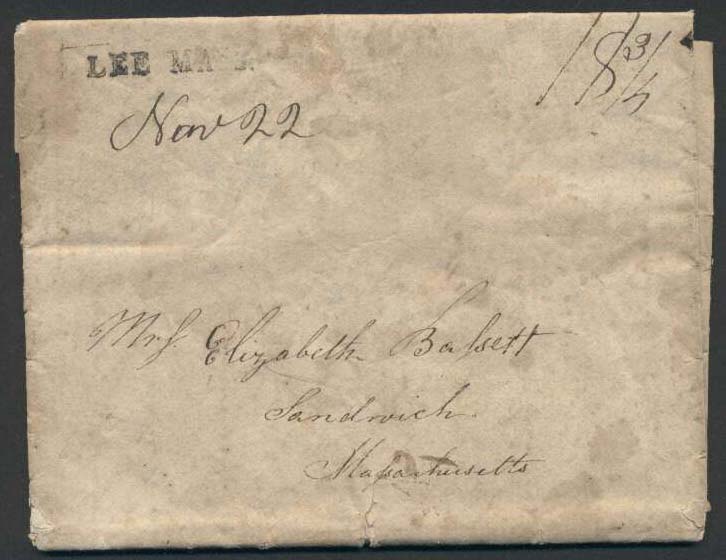 LEE MA
18 3/4
Nov 22
Mrſ. Elizabeth Baſsett
Sandwich
Maſsachusetts